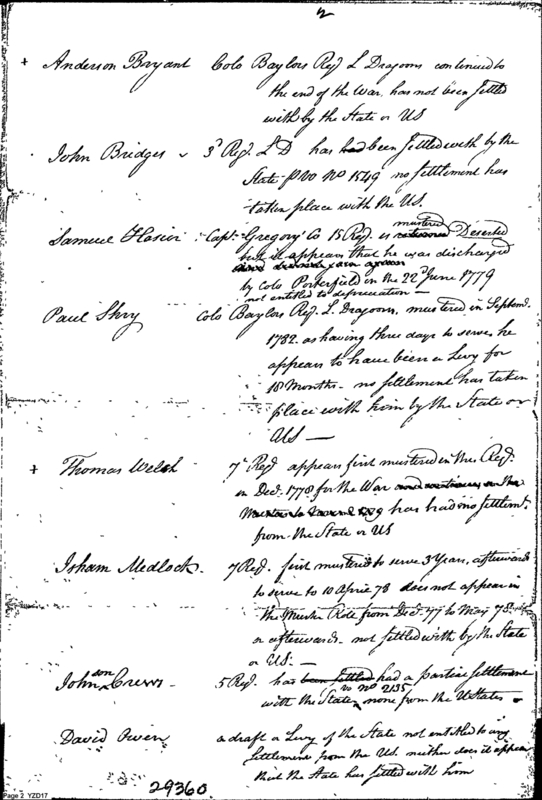 2
+ Anderson Bryant Colo Baylors Reg L Dragoons continued to
the end of the War, has not been settled
with by the State or US
John Bridges 3d Reg. L D has had been settled with by the
State pr Wo No 1549 no settlement has
taken place with the U.S.
Samuel Capt Gregory Co 15 Reg. is mustered Deserted
but it appears that he was discharged
by Colo Porterfield on the 22d June 1779
not entitled to depreciation —
Paul Shry Colo Baylors Reg. L. Dragoons, mustered in Septemr.
1782. as having three days to serve, he
appears to have been a Levy for
18 Months - no settlement has taken
place with him by the State or
US —
+ Thomas Welsh 7th Reg appears first mustered in the Reg.
in Decr. 1778 for the War
has had no settlemt.
from the State or US
Isham Medlock. 7 Reg. first mustered to serve 3 Years, afterwards
to serve to 10 April 78 does not appear in
the Muster Role from Decr. 77 to May 78
or afterwards - not settled with by the State
or US. —
Johnson Crews - 5 Reg. has been settled had a partial settlement
Wo No 2135
with the State, none from the U States
David Owen a draft a Levy of the State not entitled to any
settlement from the US. neither does it appear
that the State has settled with him
29360.
Page 2 YZD17